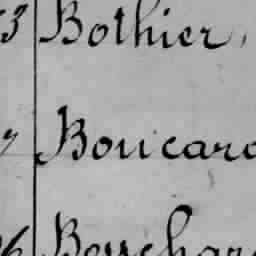 3 Bothier,
Boucard
6 Bouchar